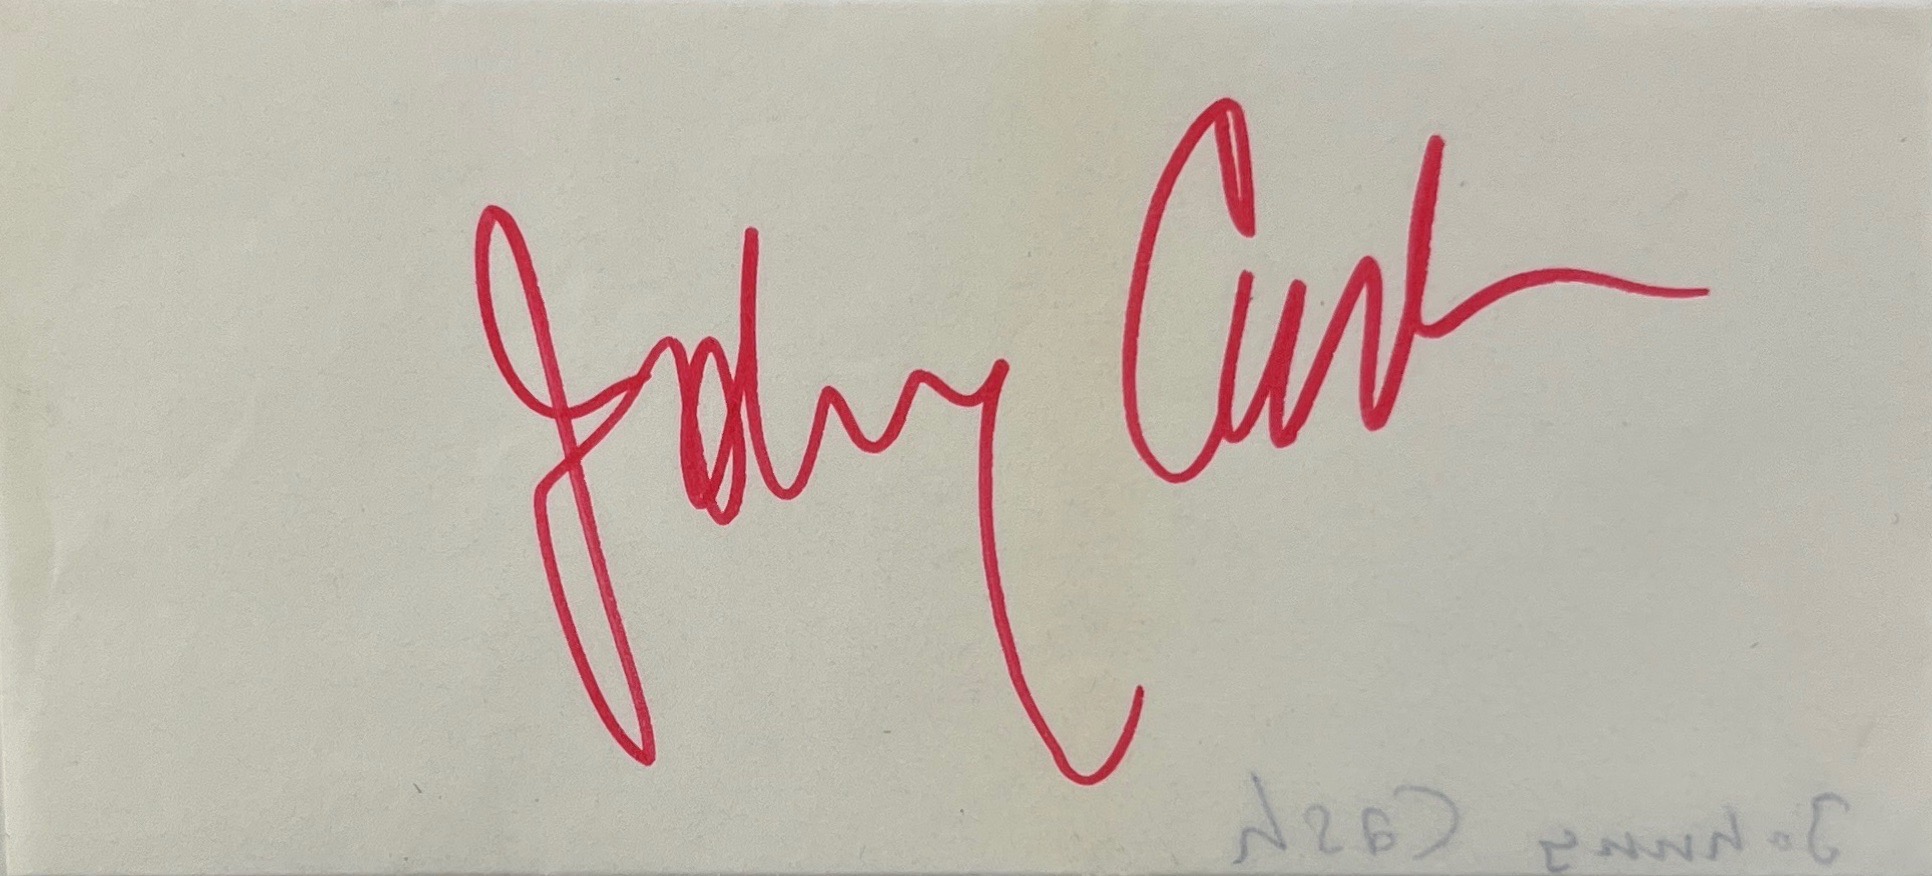 Johnny Cash
Johnny Cash